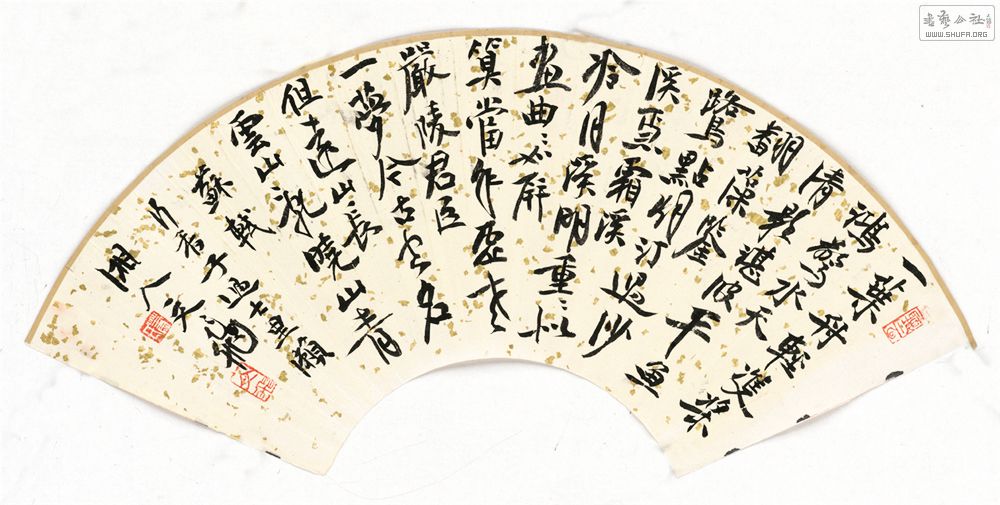 一葉舟輕雙槳
鴻驚水天
清影湛波平魚
翻藻鑒
鷺點烟汀過沙
溪急霜溪
冷月溪明重〻似
畫曲〻如屏
算當年虛老
嚴陵君臣
一夢今古空名
但遠山長
雲山亂曉山青
蘇軾
行香子過七里瀨
湘人
WWW.SHUFA.ORG